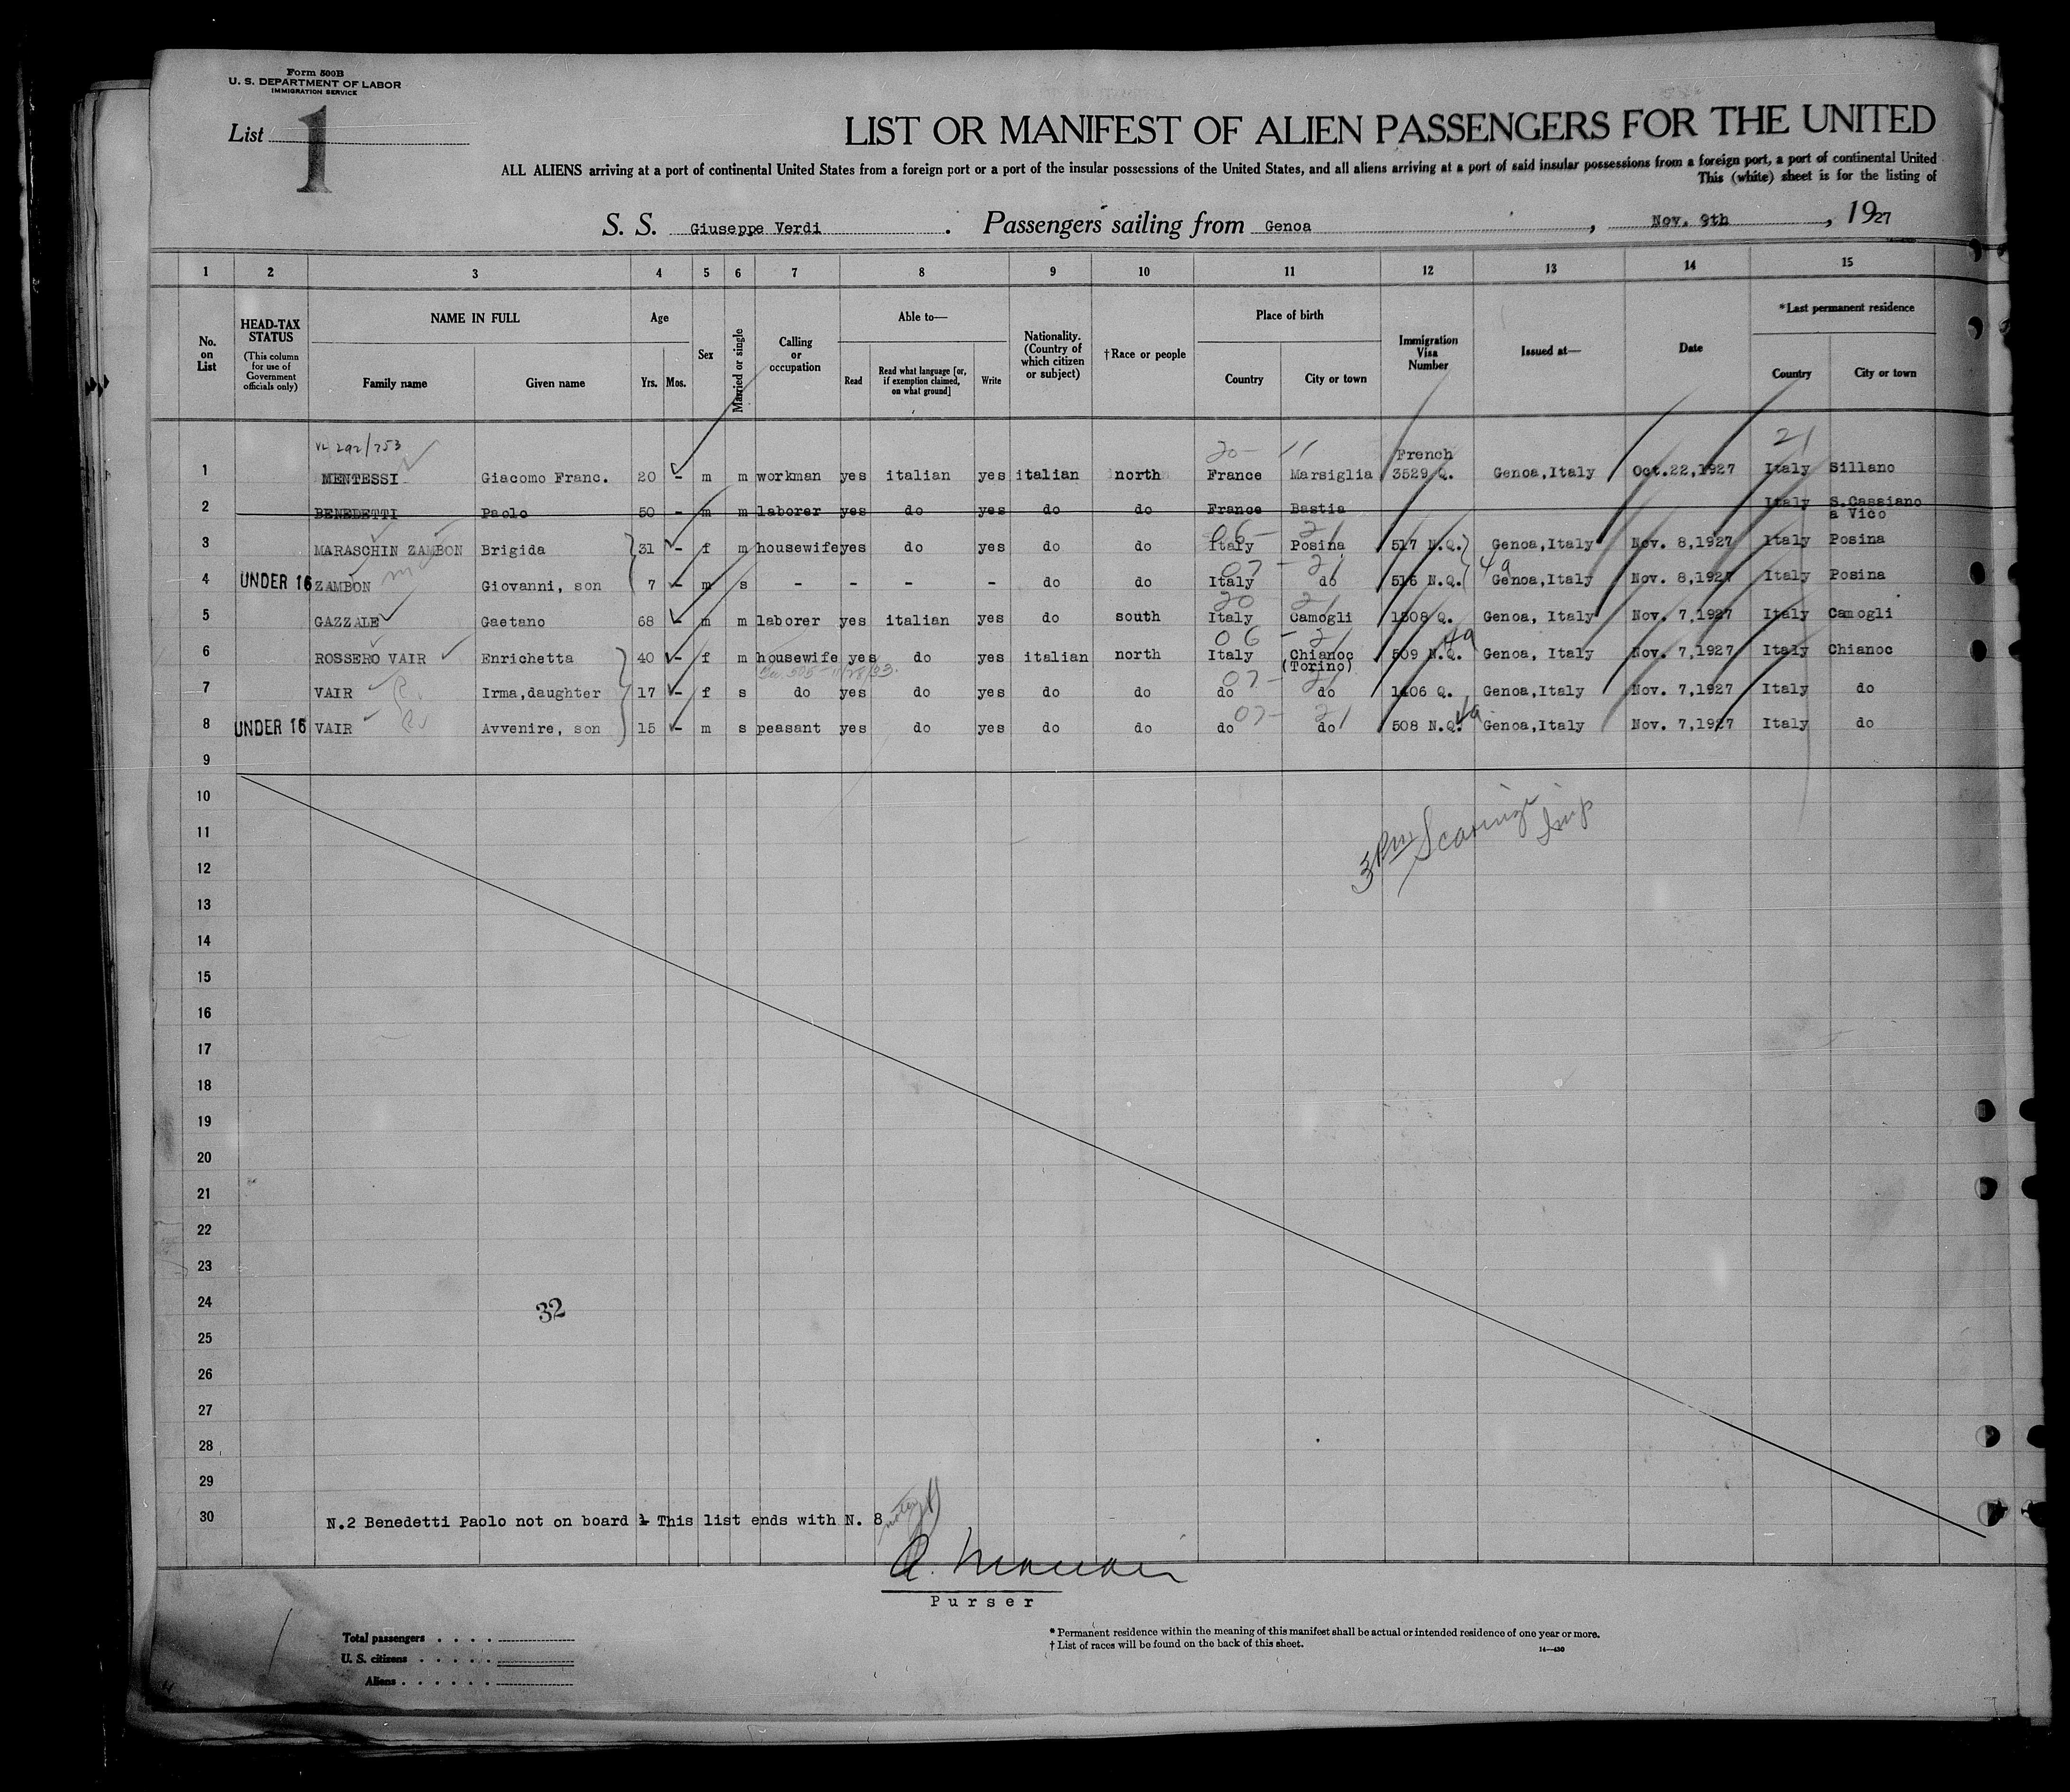 Form 500B
U. S. DEPARTMENT OF LABOR
IMMIGRATION SERVICE
List 1
LIST OR MANIFEST OF ALIEN PASSENGERS FOR THE UNITED
ALL ALIENS arriving at a port of continental United States from a foreign port or a port of the insular possessions of the United States, and all aliens arriving at a port of said insular possessions from a foreign port, a port of continental United
This (white) sheet is for the listing of
S. S. Giuseppe Verdi. Passengers sailing from Genoa, Nov. 9th, 1927
1 2 3 4 5 6 7 8 9 10 11 12 13 14 15
No. on List
HEAD-TAX STATUS (This column for use of Government officials only)
NAME IN FULL Family name Given name
Age Yrs. Mos.
Sex
Married or single
Calling or occupation
Able to— Read Read what language [or, if exemption claimed, on what ground] Write
Nationality. (Country of which citizen or subject)
†Race or people
Place of birth Country City or town
Immigration Visa Number
Issued at—
Date
*Last permanent residence Country City or town
292/753 20- 11 French 21
1 MENTESSI Giacomo Franc. 20 - m m workman yes italian yes italian north France Marsiglia 3529 Q. Genoa,Italy Oct.22,1927 Italy Sillano
2 BENEDETTI Paolo 50 - m m laborer yes do yes do do France Bastia Italy S.Cassiano a Vico
06- 21
3 MARASCHIN ZAMBON Brigida 31 - f m housewife yes do yes do do Italy Posina 517 N.Q. Genoa,Italy Nov. 8,1927 Italy Posina
07- 21 4a
4 UNDER 16 ZAMBON Giovanni, son 7 - m s - - - - do do Italy do 516 N.Q. Genoa,Italy Nov. 8,1927 Italy Posina
20 21
5 GAZZALE Gaetano 68 - m m laborer yes italian yes do south Italy Camogli 1508 Q. Genoa, Italy Nov. 7,1927 Italy Camogli
06 - 21 4a
6 ROSSERO VAIR Enrichetta 40 - f m housewife yes do yes italian north Italy Chianoc (Torino) 509 N.Q. Genoa, Italy Nov. 7,1927 Italy Chianoc
07- 21
7 VAIR Irma,daughter 17 - f s do yes do yes do do do do 1406 Q. Genoa,Italy Nov. 7,1927 Italy do
07- 21 4a
8 UNDER 16 VAIR Avvenire, son 15 - m s peasant yes do yes do do do do 508 N.Q. Genoa,Italy Nov. 7,1927 Italy do
9
10
11
12
13
14
15
16
17
18
19
20
21
22
23
24
25
26
27
28
29
30
32
N.2 Benedetti Paolo not on board 1 This list ends with N. 8
Purser
Total passengers
U. S. citizens
Aliens
* Permanent residence within the meaning of this manifest shall be actual or intended residence of one year or more.
† List of races will be found on the back of this sheet.
14—430